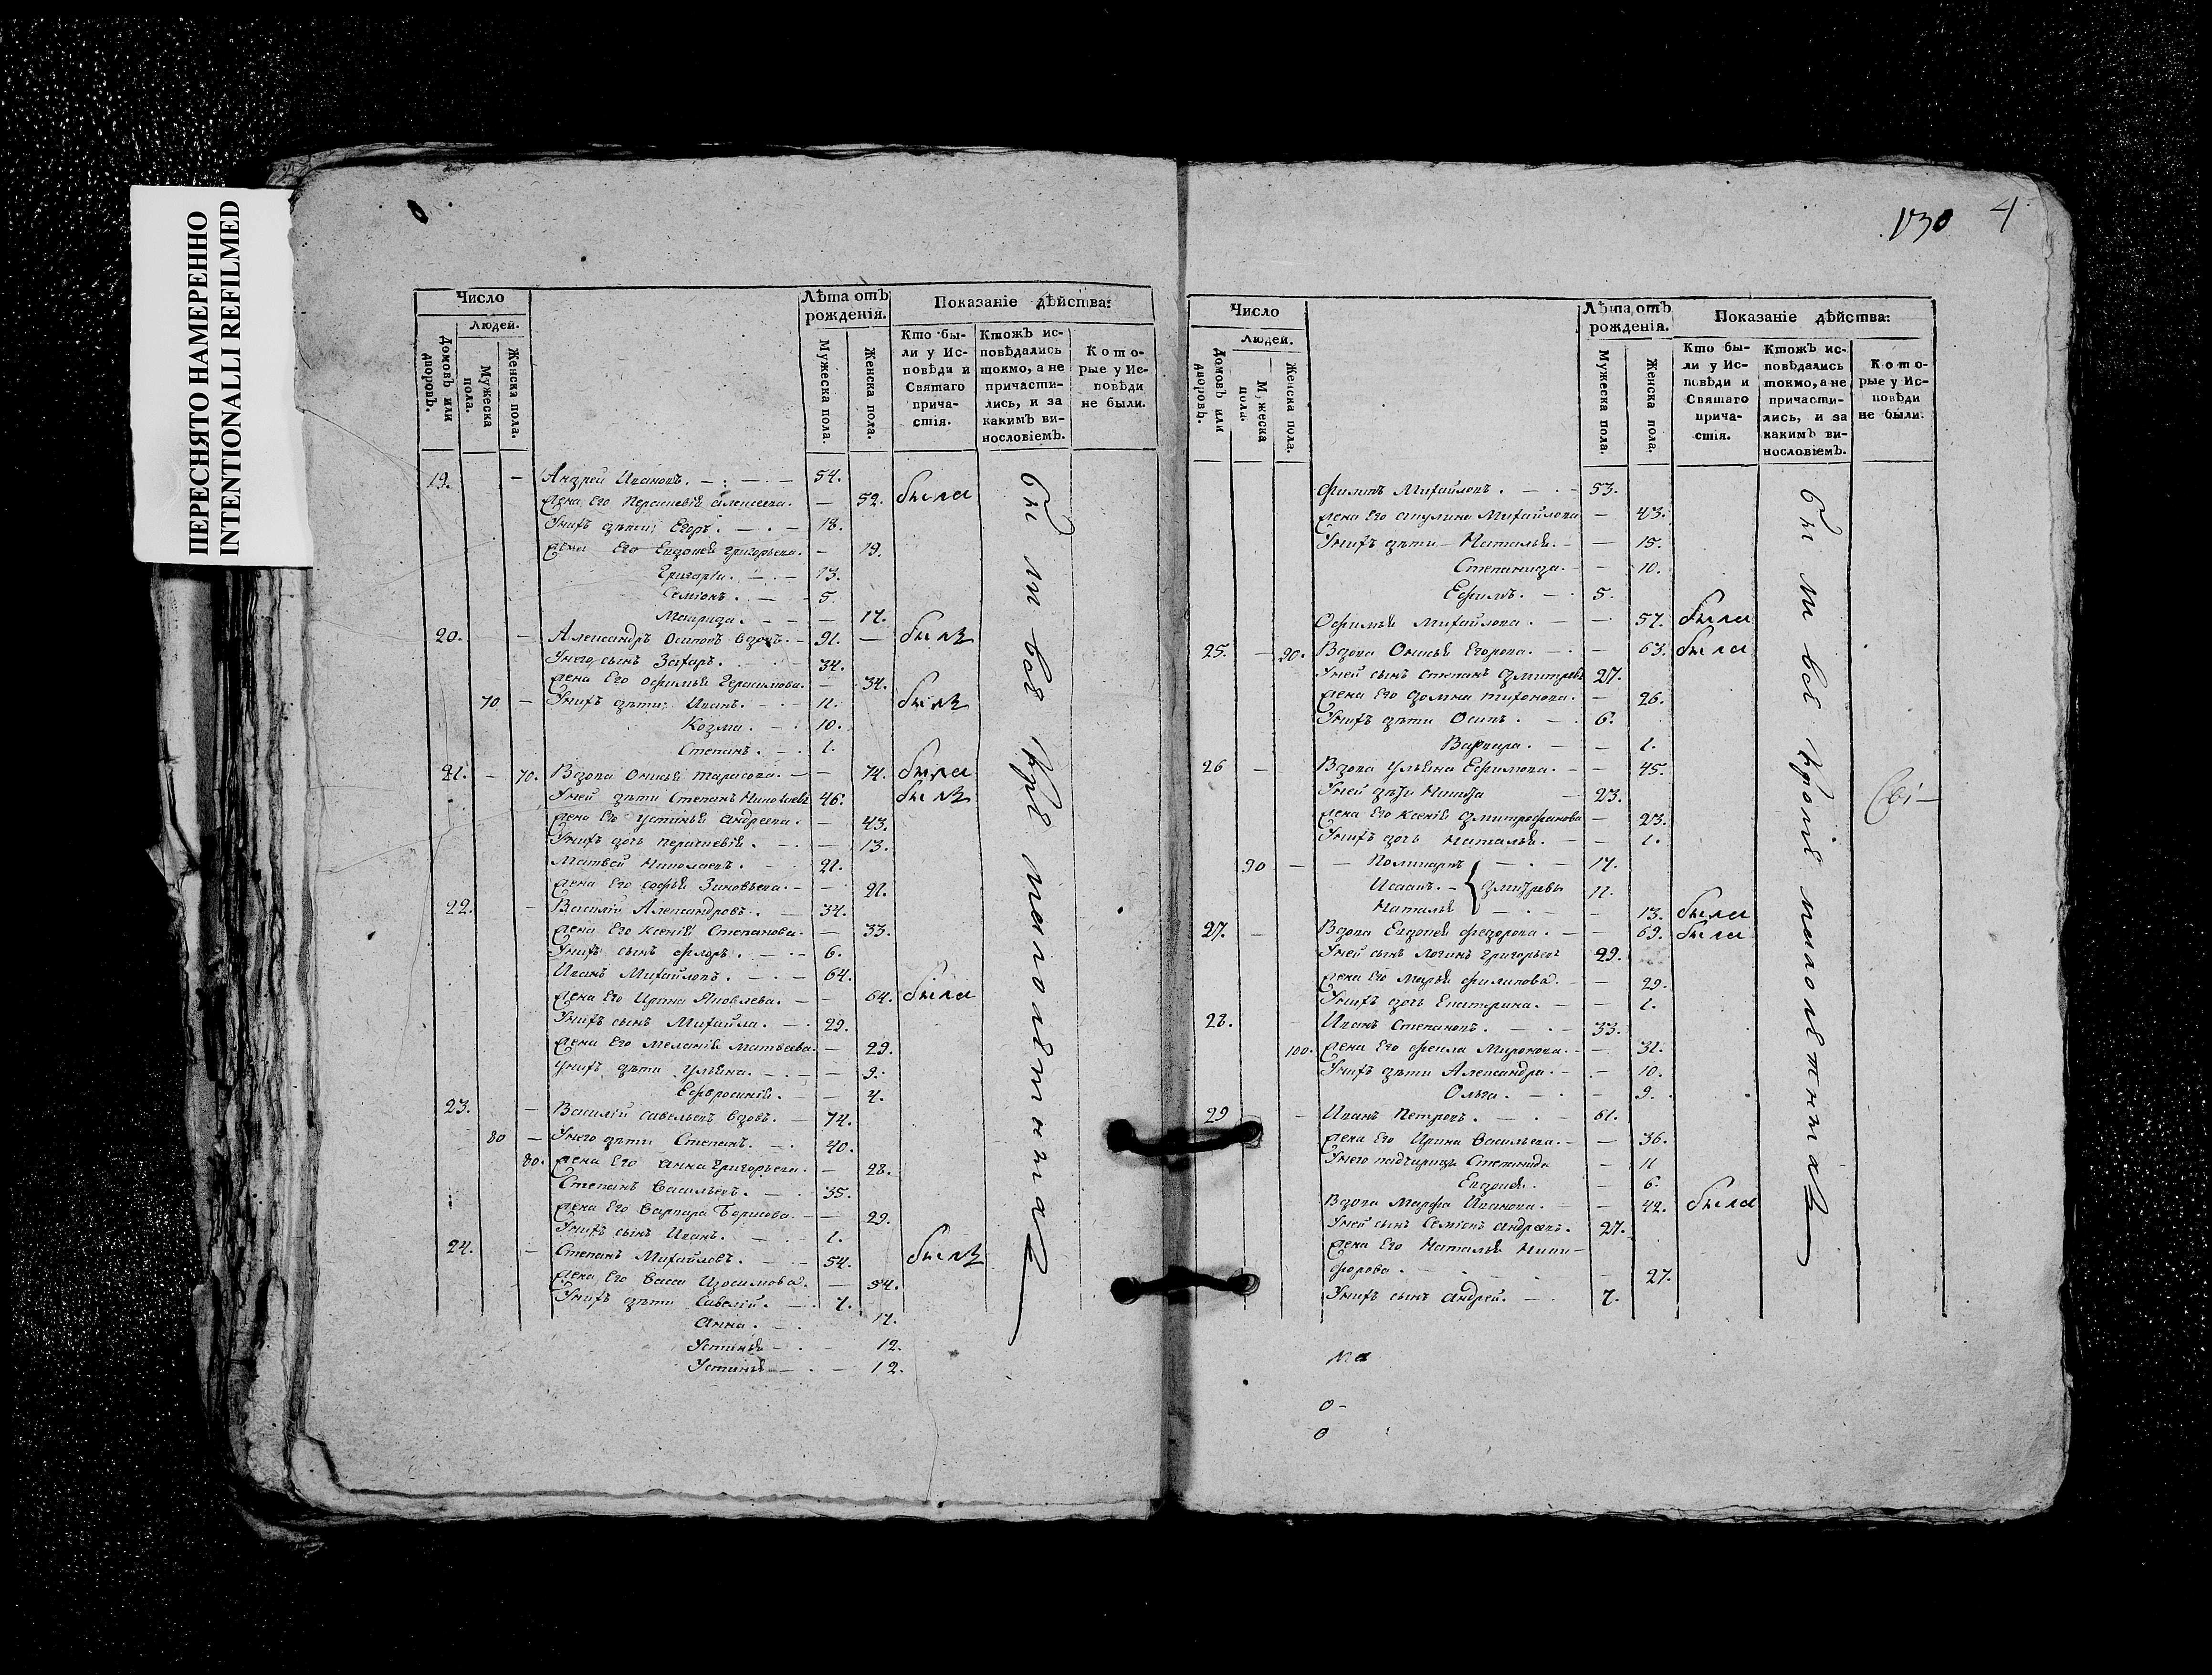 ПЕРЕСНЯТО НАМЕРЕННО
INTENTIONALLI REFILMED
Число
Людей.
Домовъ или дворовъ.
Мужеска пола.
Женска пола.
Лѣта отъ рожденія.
Мужеска пола.
Женска пола.
Показаніе дѣйства:
Кто были у Исповѣди и Святаго причастія.
Ктожъ исповѣдались токмо, а не причастились, и за какимъ винословіемъ.
Которые у Исповѣди не были.
19. — Андрей Ивановъ. 54.
жена Его Парасковія Алексеева. — 52. была
Унихъ дѣти: Егоръ. 18.
жена Его Евдокея Григорьева. — 19.
Григорiи. 13.
Семіонъ. 5.
Матрида. — 17.
20. — Александръ Осиповъ вдовъ. 91. — былъ
Унего сынъ Захаръ. 34.
жена Его Офимья Герасимова. — 34.
70 — Унихъ дѣти: Иванъ. 11. былъ
Козма. 10.
Степанъ. 1.
21. — 70. Вдова Онисья Тарасова. — 74. была
Уней дѣти Степанъ Николаевъ 46. былъ
жена Его Устинья Андреева. — 43.
Унихъ дочь Парасковія. — 13.
Матвей Николаевъ. 21.
жена Его Софья Зиновьева. — 21.
22. — Василій Александровъ. 34.
жена Его Ксенія Степанова. — 33.
Унихъ сынъ Флоръ. 6.
Иванъ Михайловъ. 64.
жена Его Ирина Яковлева. — 64. была
Унихъ сынъ Михайла. 29.
жена Его Меланія Матвеева. — 29.
Унихъ дѣти Ульяна. — 9.
Ефросинія. — 4.
23. — Василій Савельевъ вдовъ. 74.
80 — Унего дѣти Степанъ. 40.
80. жена Его Анна Григорьева. — 28.
Степанъ Васильевъ. 35.
жена Его Варвара Борисова. — 29.
Унихъ сынъ Иванъ. 1.
24. — Степанъ Михайловъ. 54. былъ
жена Его Васса Изосимова. — 54.
Унихъ дѣти Савелій. 7.
Анна. 17.
Устинья — 12.
Устинья — 12.
были всѣ кроме малолѣтнихъ
130 4
Число
Людей.
Домовъ или дворовъ.
Мужеска пола.
Женска пола.
Лѣта отъ рожденія.
Мужеска пола.
Женска пола.
Показаніе дѣйства:
Кто были у Исповѣди и Святаго причастія.
Ктожъ исповѣдались токмо, а не причастились, и за какимъ винословіемъ.
Которые у Исповѣди не были.
Филипъ Михайловъ. 53.
жена Его Акулина Михайлова — 43.
Унихъ дѣти Наталья. — 15.
Степанида. — 10.
Ефимъ. 5.
Офимья Михайлова. — 57. была
25. — 90. Вдова Онисья Егорова. — 63. была
Уней сынъ Степанъ Дмитревъ 27.
жена Его Домна Тихонова. — 26.
Унихъ дѣти Осипъ. 6.
Варвара. — 1.
26 — Вдова Ульяна Ефимова. — 45.
Уней дѣти Никита 23.
жена Его Ксенія Дмитрофанова — 23.
Унихъ дочь Наталья. — 1.
90 — Поликарпъ 17.
Исаакъ. } Дмитревы 11.
Наталья — 13. была
27. — Вдова Евдокея Федорова. — 69. была
Уней сынъ Логинъ Григорьевъ 29.
жена Его Марья Филипова. — 29.
Унихъ дочь Екатерина. — 1.
28. — Иванъ Степановъ. 33.
100. жена Его Фекла Миронова. — 31.
Унихъ дѣти Александра. — 10.
Ольга. — 9.
29 — Иванъ Петровъ. 61.
жена Его Ирина Васильева. — 36.
Унего падчерицы Степанида — 11
Евдокея. — 6.
Вдова Марфа Иванова. — 42. была
Уней сынъ Семіонъ Андреевъ. 27.
жена Его Наталья Ники-
форова. — 27.
Унихъ сынъ Андрей. 7.
были всѣ кроме малолетнихъ